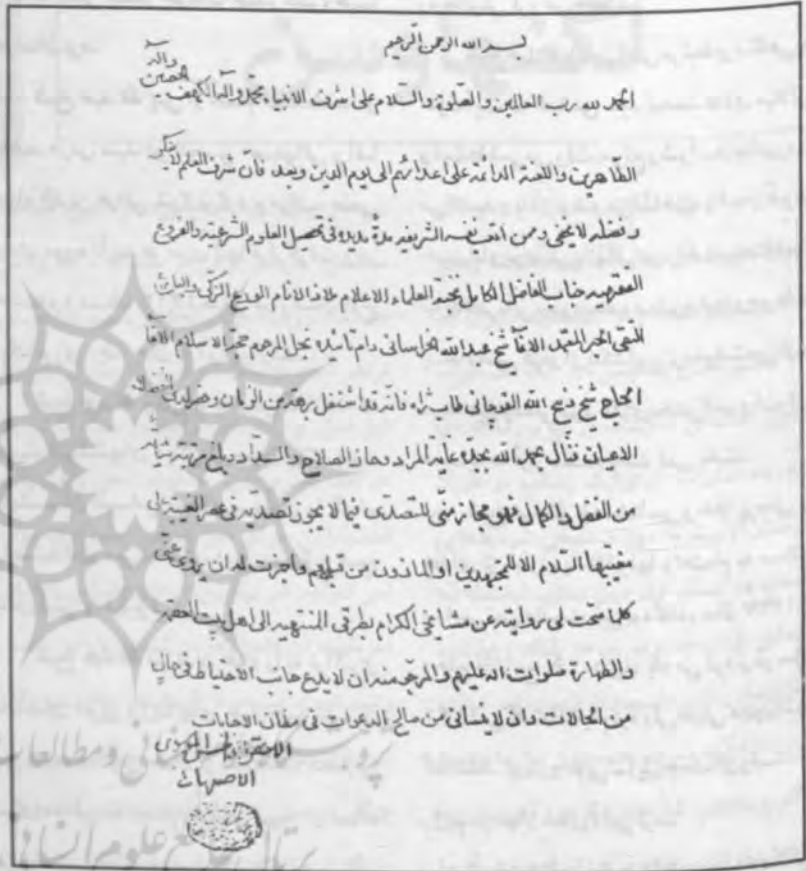 بسم الله الرحمن الرحیم
الحمد لله رب العالمین و الصلوة والسّلام علی اشرف الانبیاء محمّد وآله
الطّاهرین واللعنة الدائمة علی اعدائهم الی یوم الدین وبعد فانّ شرف العلم لا
وفضله لا یخفی وممن نفسه الشریفه مدة مدیدة فی تحصیل العلوم الشرعیة والفروع
الفقهیه جناب الفاضل الکامل نخبة العلماء الاعلام ملاذ الانام الورع الزکی
التقی الحبر المعتمد الاقا شیخ عبد الله الخراسانی دام تائیده نجل المرحوم حجة الاسلام الآقا
الحاج شیخ ذبیح الله القوچانی طاب ثراه فانّه قد اشتغل برهة من الزمان وحضر لدی
الاعیان فنال بحمد الله بجدّه غایة المراد وحاز الصلاح والسداد وبلغ مرتبة
من الفضل والکمال فهو مجاز منّی للتصدی فیما لا یجوز تصدّیه فی عصر الغیبة علی
مغیبها السّلام الا للمجتهدین او الماذون من قبلهم واجزت له ان یروی عنّی
کلما صحت لی روایته عن مشایخی الکرام بطرقی المنتهیه الی اهل بیت العصمة
والطهارة صلوات الله علیهم والمرجو منه ان لا یدع جانب الاحتیاط فی حال
من الحالات وان لا ینسانی من صالح الدعوات فی مظان الاجابات
الاحقر ابوالحسن الموسوی
الاصفهانی
ومطالعات
علوم انسانی